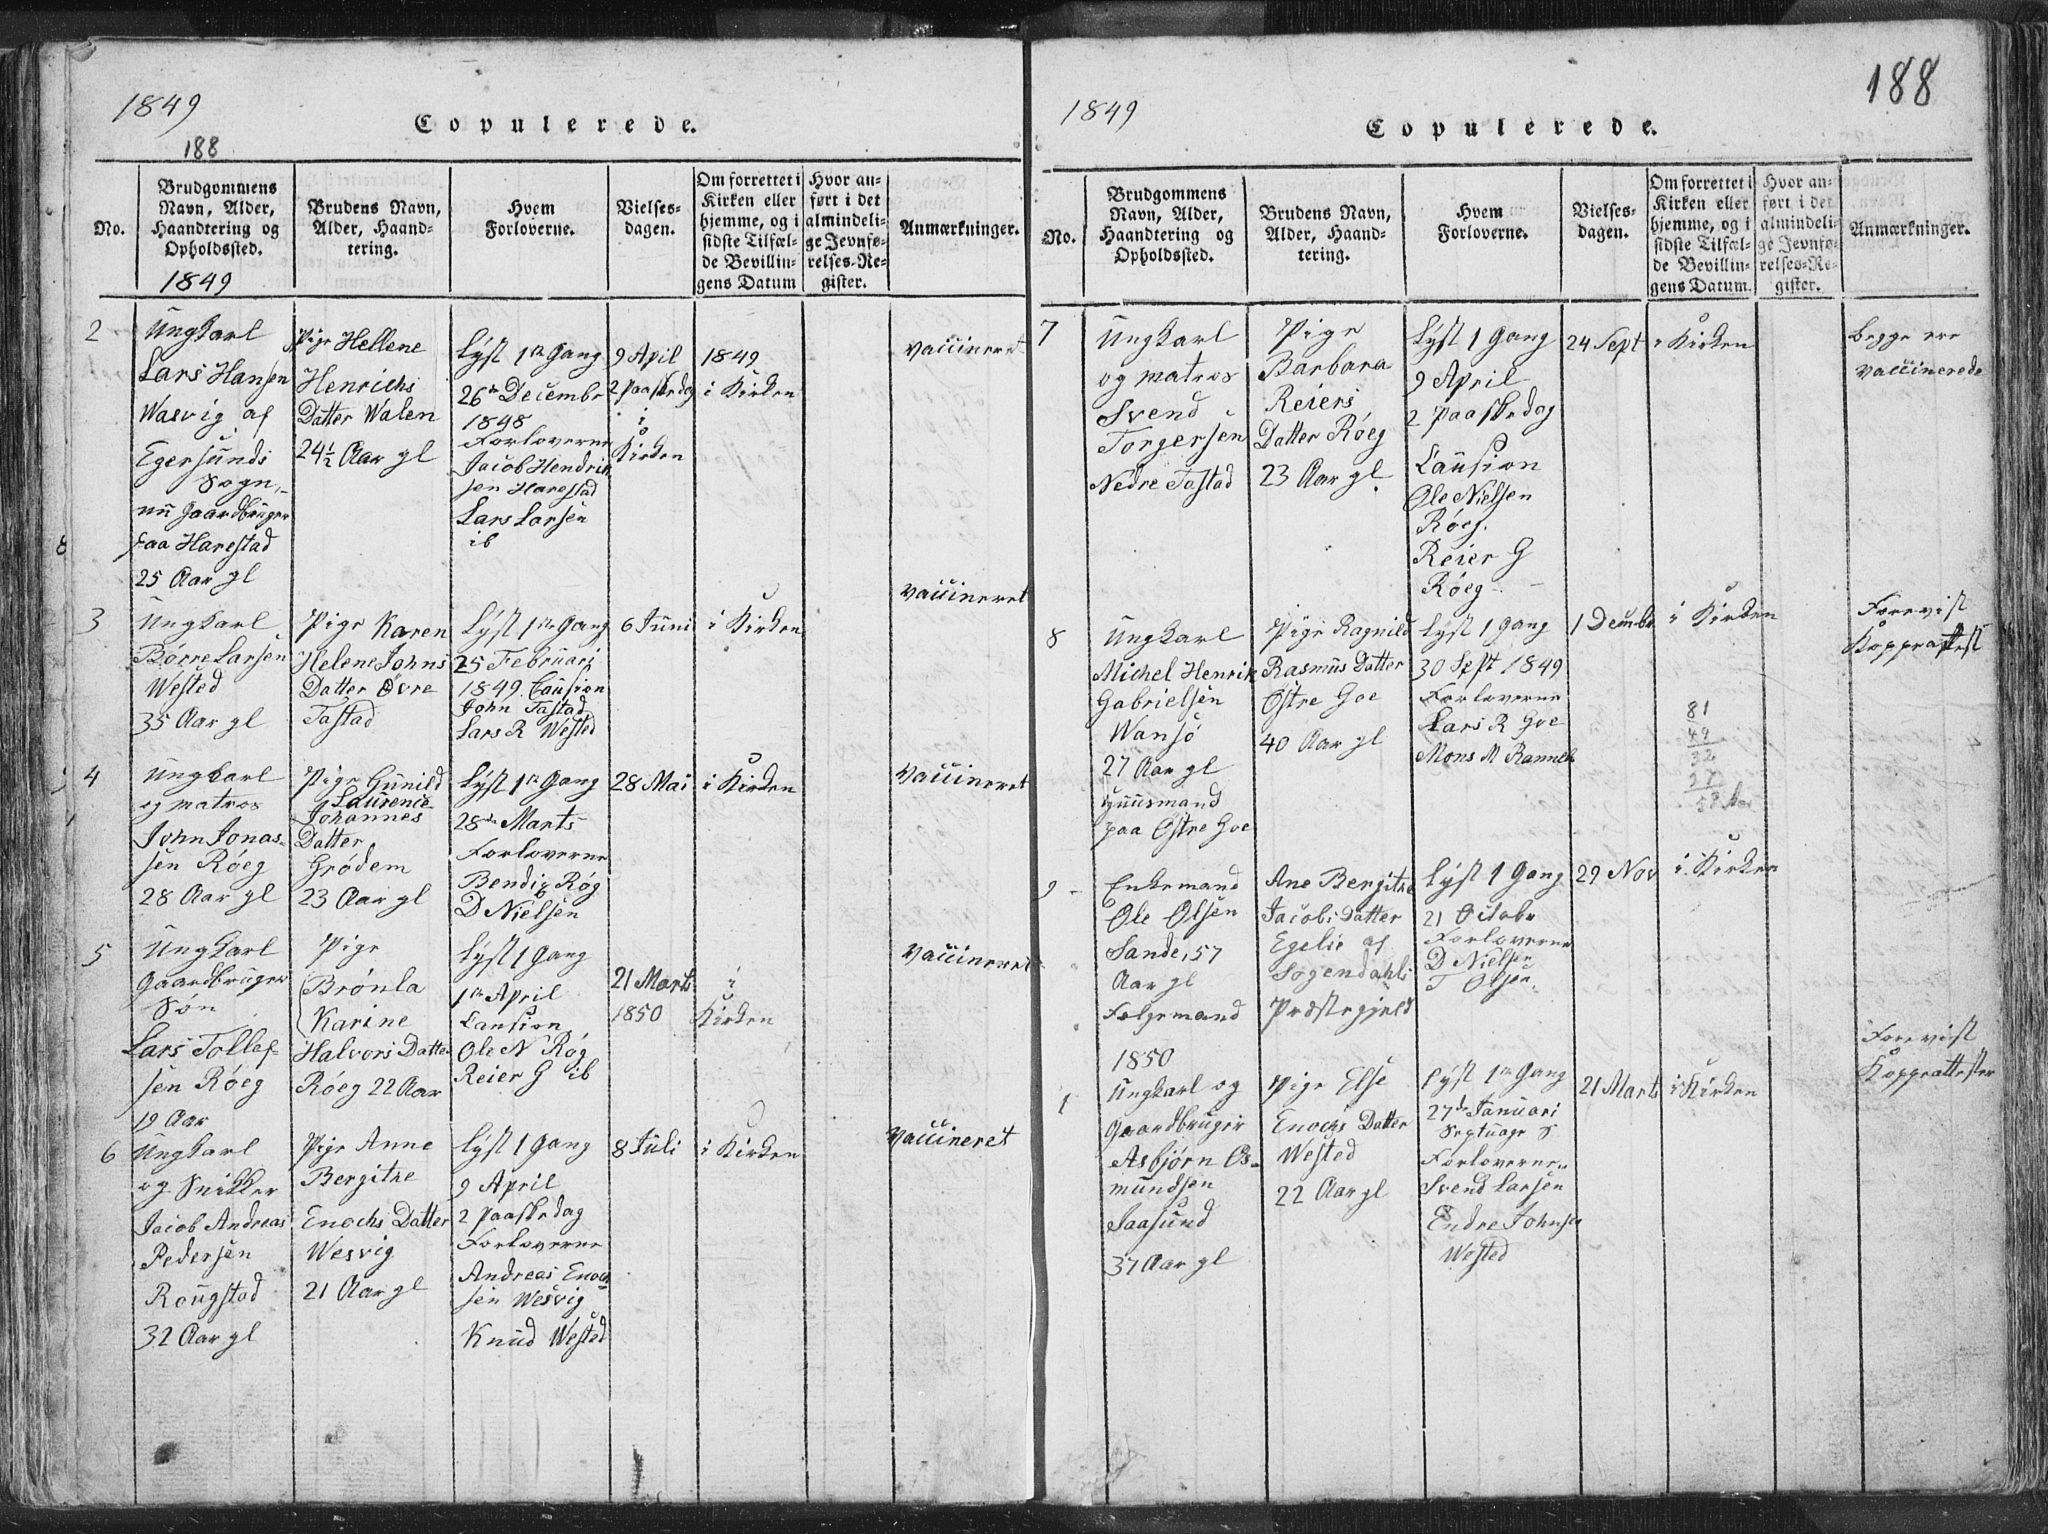 1849
Copulerede.
188
No.
Brudgommens
Navn, Alder,
Haandtering og
Opholdssted.
1849
Brudens Navn,
Alder, Haand-
tering.
Hvem
Forloverne.
Vielses-
dagen.
Om forrettet i
Kirken eller
hjemme, og i
sidste Tilfæl-
de Bevillin-
gens Datum
Hvor an-
ført i det
almindeli-
ge Jevnfø-
relses-Re-
gister.
Anmærkninger.
2
Ungkarl
Lars Hansen
Wasvig af
Egersunds
Sogn,
nu Gaardbruger
paa Harestad
25 Aar gl
Pige Hellene
Henrichs
Datter Walen
24½ Aar gl
Lyst 1te Gang
26de Decembr
1848
Forloverne
Jacob Hendrik
sen Harestad
Lars Larsen
ib
9 Apil
2 Paaskedag
i
Kirken
1849
i Kirken
vaccineret
8
3
Ungkarl
Börre Larsen
Wested
35 Aar gl
Pige Karen
Helene Johns
Datter Øvre
Tastad
Lyst 1te Gang
25 Februari
1849. Caution
John Tastad
Lars R Wested
6 Juni
i Kirken
vaccineret
4
Ungkarl
og matros
John Jonas-
sen Röeg
28 Aar gl
Pige Gunild
Laurence
Johannes
Datter
Grödem
23 Aar gl
Lyst 1te Gang
28de Marts
Forloverne
Bendix Røg
D Nielsen
28 Mai
i Kirken
vaccineret
5
Ungkarl
Gaardbruger
Søn
Lars Tollef-
sen Röeg
19 Aar
Pige
Brönla
Karine
Halvors Datter
Röeg 22 Aar
Lyst 1 Gang
1te April
Caution
Ole N Røg
Reier G ib
21 Marts
1850
i
Kirken
vaccineret
6
Ungkarl
og Snikker
Jacob Andreas
Pedersen
Rougstad
32 Aar gl
Pige Anne
Bergitne
Enochs Datter
Wesvig
21 Aar gl
Lyst 1 Gang
9 April
2 Paaskedag
Forloverne
Andreas Enoch
sen Wesvig
Knud Wested
8 Juli
i Kirken
vaccineret
1849
Copulerede.
188
No.
Brudgommens
Navn, Alder,
Haandtering og
Opholdssted.
Brudens Navn,
Alder, Haand-
tering.
Hvem
Forloverne.
Vielses-
dagen.
Om forrettet i
Kirken eller
hjemme, og i
sidste Tilfæl-
de Bevillin-
gens Datum.
Hvor an-
ført i det
almindeli-
ge Jevnfø-
relses-Re-
gister.
Anmærkninger.
7
Ungkarl
og matros
Svend
Torgersen
Nedre Tastad
Pige
Barbara
Reiers
Datter Röeg
23 Aar gl.
Lyst 1 Gang
9 April
2 Paaskedag
Caution
Ole Nielsen
Röeg.
Reier G
Röeg
24 Sept
i Kirken
begge ere
vaccinerede
8
Ungkarl
Michel Henrik
Gabrielsen
Wansö
27 Aar gl
Huusmand
paa Østre Goe
Pige Ragnild
Rasmus Datter
Østre Goe
40 Aar gl
Lyst 1 Gang
30 Sept 1849
Forloverne
Lars R Goe
Mons M Ranneb
1 Decmbr
i Kirken
81
49
32
27
Forevist
Koppeattest
9
Enkemand
Ole Olsen
Sande, 57
Aar gl
Følgemand
Ane Bergitne
Jacobs Datter
Egelie af
Sogendahls
Præstegjeld
Lyst 1 Gang
21 Octobr
Forloverne
D Nielsen
T Olsen.
29 Nov
i Kirken
1850
1
Ungkarl og
Gaardbruger
Asbjörn Os-
mundsen
Saasund
37 Aar gl
Pige Else
Enochs Datter
Wested
22 Aar gl
Lyst 1te Gang
27de Januari
Septuage S
Forloverne
Svend Larsen
Endre Johnsen
Wested
21 Marts
i Kirken
Forevist
Koppeattester